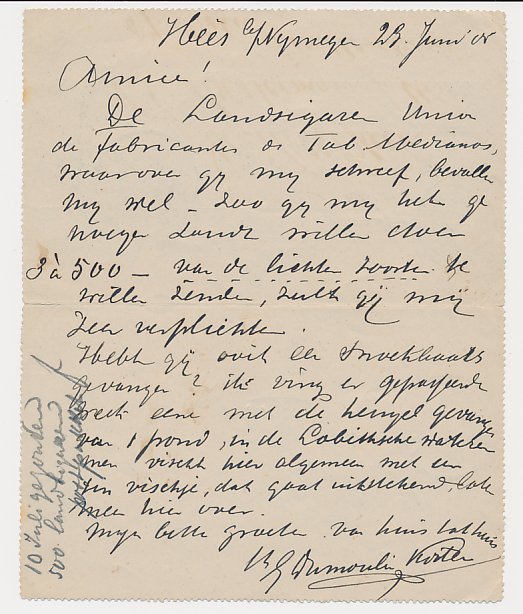 Hees b/Nymegen 23 Juni 08
Amice!
De Landsigaren Union
de fabricantes de Tab Medianos,
waarover gy my schreef, bevallen
my wel – zoo gy my het ge
noegen zoudt willen doen
3 à 500 – van de lichte soorten te
willen zenden, zult gij mij
zeer verplichten.
Hebt gij ooit een Snoekbaars
gevangen? ik ving er gepasseerde
week eene met de hengel gevangen
van 1 pond, in de Lobithsche wateren
men vischt hier algemeen met een
vischje, dat gaat uitstekend, late
meer hier over.
Myn beste groeten van huis tot huis
Dumoulin
10 Juli gezonden
500 landsigaren